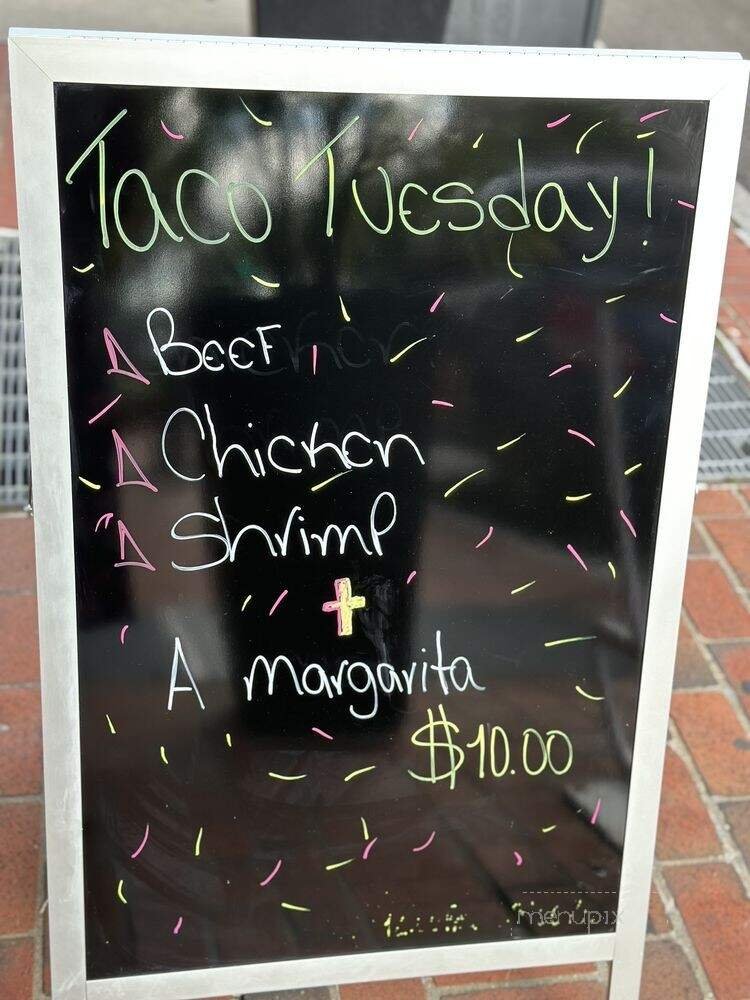 Taco Tuesday!
Beef
Chicken
Shrimp
+
A margarita
$10.00
menupix